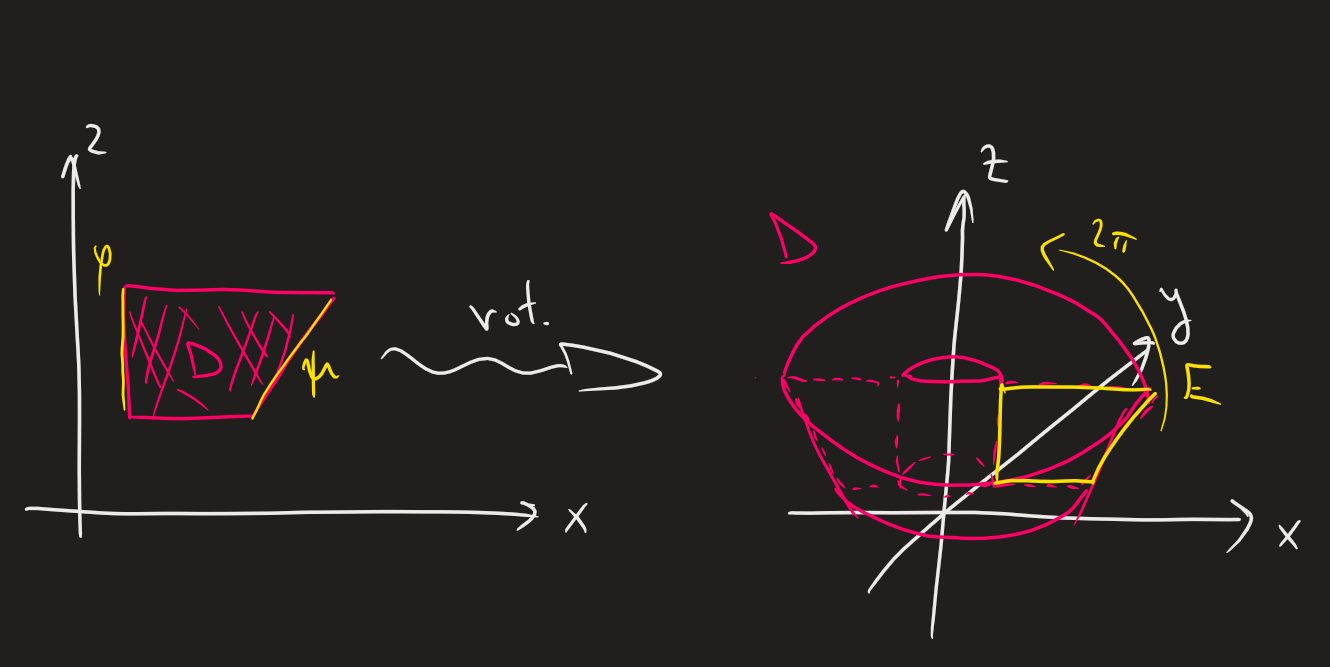 z
φ
D
ψ
x
rot.
D
z
2π
y
E
x